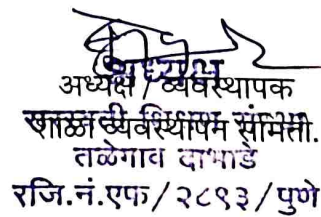 अध्यक्ष
अध्यक्ष / व्यवस्थापक
शाळा व्यवस्थापन समिती.
तळेगाव दाभाडे
रजि.नं.एफ/२८९३/पुणे